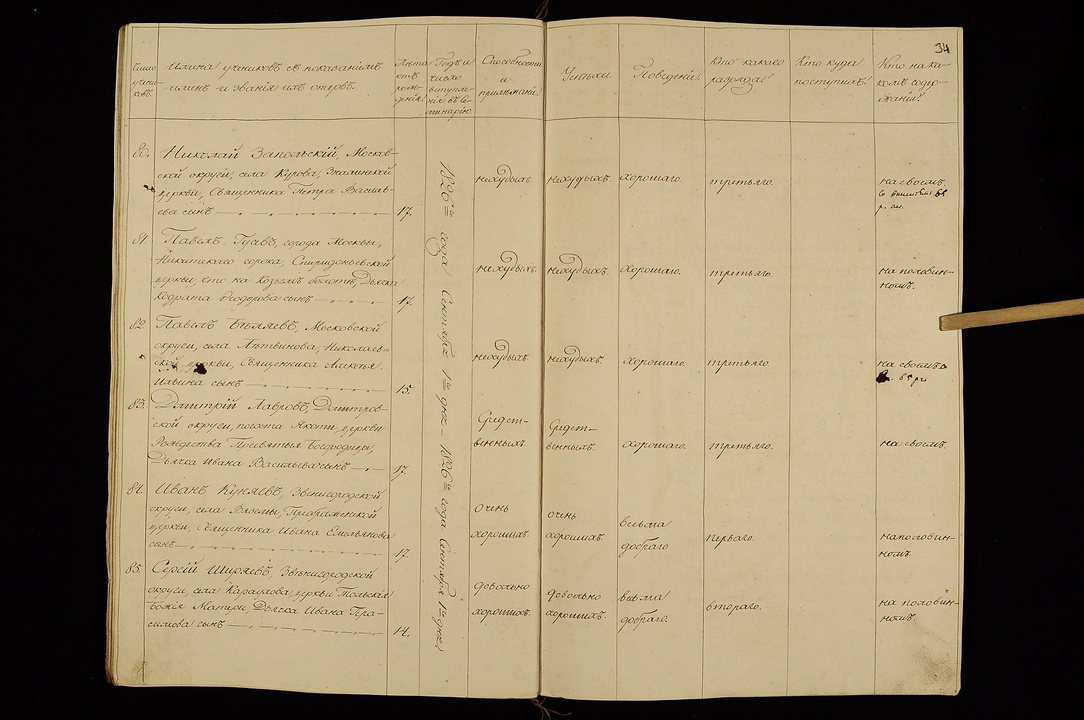 34
Число учени-ковъ.
Имена учениковъ съ показаніемъ
имянъ и званія ихъ отцовъ.
Лѣта отъ рож-денія.
Годъ и число вступле-нія въ Се-минарію.
Способности и прилѣжаніе.
Успѣхи.
Поведеніе.
Кто какаго разряда?
Кто куда поступилъ?
Кто на ка-комъ содер-жаніи?
80. Николай Запольскій, Москов-
ской округи, села Курова, Знаменской
церкви, Священника Петра Василь-
ева сынъ — 17.
нехудыхъ. нехудыхъ. хорошаго. третьяго. на своемъ.
81. Павелъ Гусевъ, города Москвы,
Никитскаго сорока, Спиридоньевской
церкви, что на Козьемъ болотѣ, Дьячка
Кодрата Ѳеодорова сынъ — 17.
нехудыхъ. нехудыхъ. хорошаго. третьяго. на половин-
номъ.
82. Павелъ Бѣляевъ, Московской
округи, села Лѣтвинова, Николаев-
ской церкви, Священника Алексѣя
Ильина сынъ — 15.
нехудыхъ. нехудыхъ. хорошаго. третьяго. на своемъ
83. Дмитрій Лавровъ, Дмитров-
ской округи, погоста Якоти, церкви
Рождества Пресвятыя Богородицы,
Дьячка Ивана Васильева сынъ — 17.
Средст-
венныхъ. Средст-
венныхъ. хорошаго. третьяго. на своемъ.
84. Иванъ Куняевъ, Звенигородской
округи, села Вяземы, Преображенской
церкви, Священника Ивана Емельянова
сынъ — 17.
Очень
хорошихъ. очень
хорошихъ. весьма
добраго. перваго. на половин-
номъ.
85. Сергій Ширяевъ, Звѣнигородской
округи, села Караулова, церкви Толскія
Божія Матери, Дьячка Ивана Гера-
симова сынъ — 14.
довольно
хорошихъ. довольно
хорошихъ. весьма
добраго. втораго. на половин-
номъ.
1826го года Сентября 1го дня. 1826го года Сентября 1го дня.